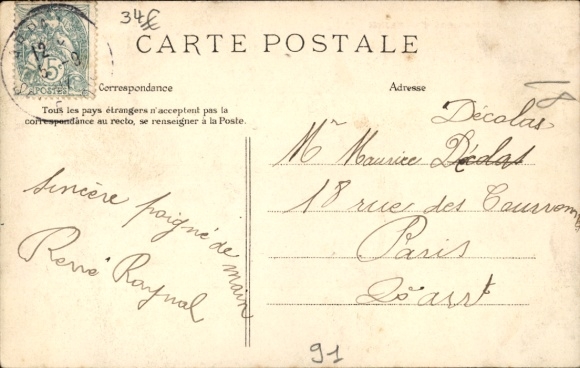 34€
CARTE POSTALE
Correspondance
Adresse
Tous les pays étrangers n'acceptent pas la
correspondance au recto, se renseigner à la Poste.
5
POSTES
sincère poigné de main
René Raynal
Décolas
Mr Maurice Décolas
18 rue des
Paris
20e arrt
91